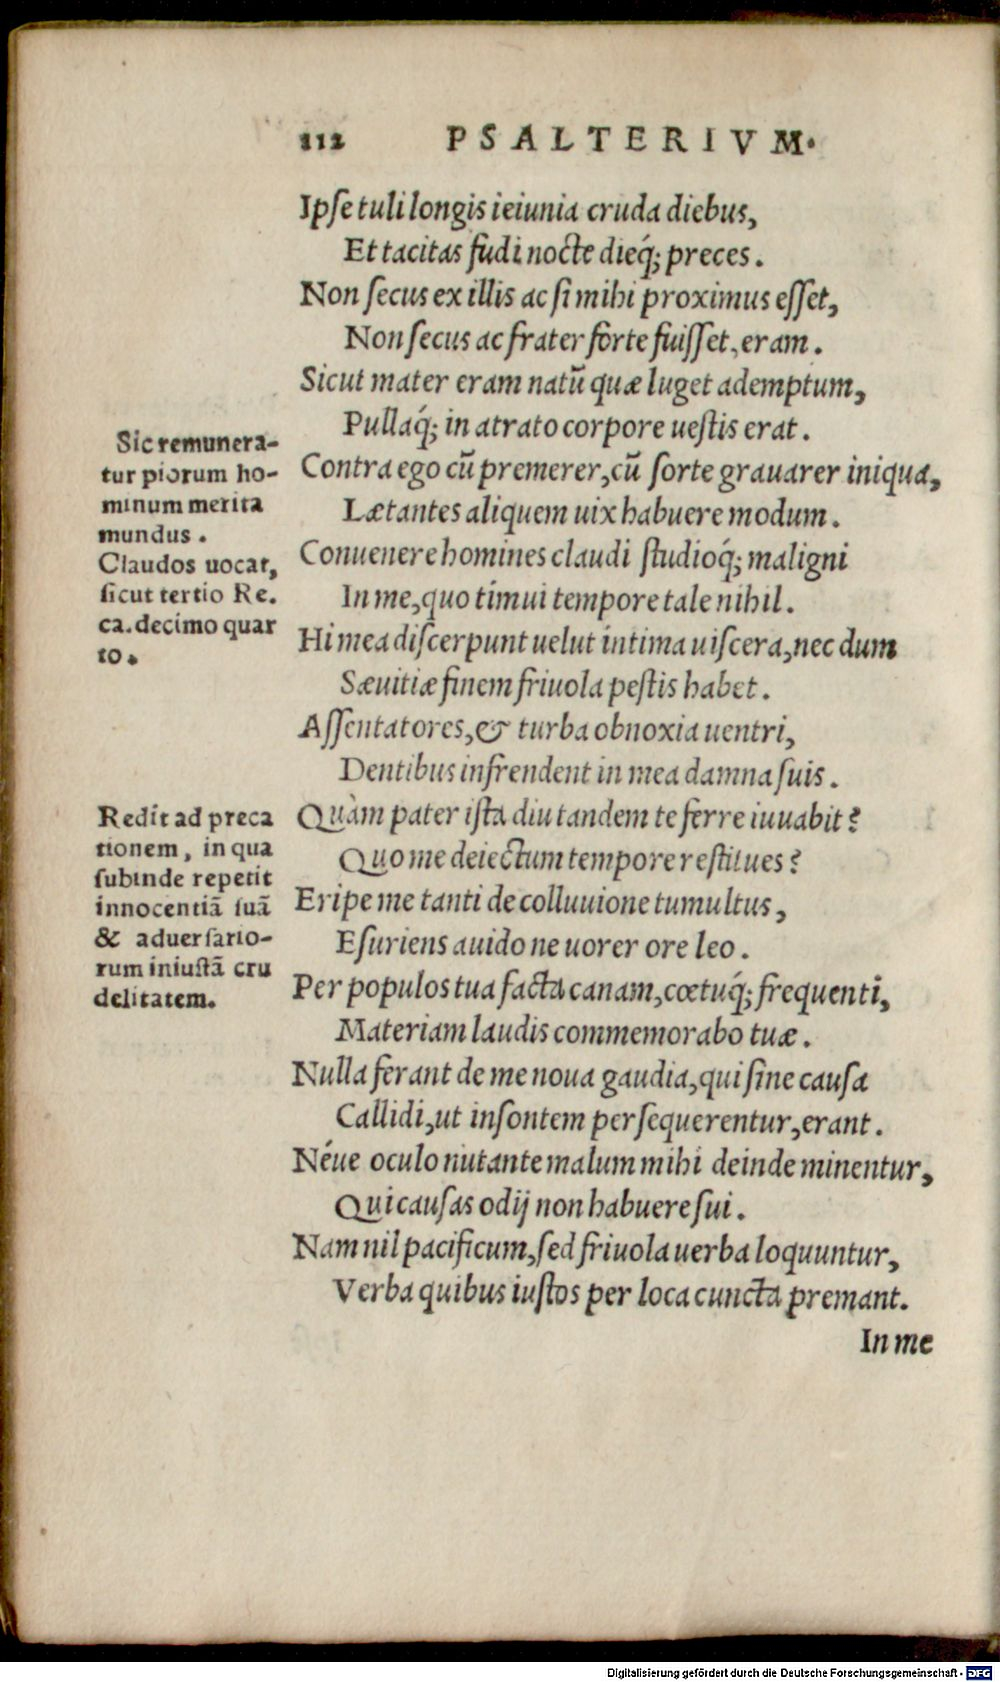 112 PSALTERIVM.
Ipſe tuli longis ieiunia cruda diebus,
Et tacitas fudi nocte dieq́; preces.
Non ſecus ex illis ac ſi mihi proximus eſſet,
Non ſecus ac frater forte fuiſſet, eram.
Sicut mater eram natũ quæ luget ademptum,
Pullaq́; in atrato corpore ueſtis erat.
Contra ego cũ premerer, cũ ſorte grauarer iniqua,
Lætantes aliquem uix habuere modum.
Conuenere homines claudi ſtudioq́; maligni
In me, quo tímui tempore tale nihil.
Hi mea diſcerpunt uelut íntima uiſcera, nec dum
Sæuitiæ finem friuola peſtis habet.
Aſſentatores, & turba obnoxia uentri,
Dentibus infrendent in mea damna ſuis.
Quàm pater iſta diu tandem te ferre iuuabit?
Quo me deiectum tempore reſtitues?
Eripe me tanti de colluuione tumultus,
Eſuriens auido ne uorer ore leo.
Per populos tua facta canam, cœtuq́; frequenti,
Materiam laudis commemorabo tuæ.
Nulla ferant de me noua gaudia, qui ſine cauſa
Callidi, ut inſontem perſequerentur, erant.
Néue oculo nutante malum mihi deinde minentur,
Qui cauſas odij non habuere ſui.
Nam nil pacificum, ſed friuola uerba loquuntur,
Verba quibus iuſtos per loca cuncta premant.
In me
Sic remunera-
tur piorum ho-
minum merita
mundus.
Claudos uocat,
ſicut tertio Re.
ca. decimo quar
to.
Redit ad preca
tionem, in qua
ſubinde repetit
innocentiã ſuã
& aduerſario-
rum iniuſtã cru
delitatem.
Digitalisierung gefördert durch die Deutsche Forschungsgemeinschaft - DFG